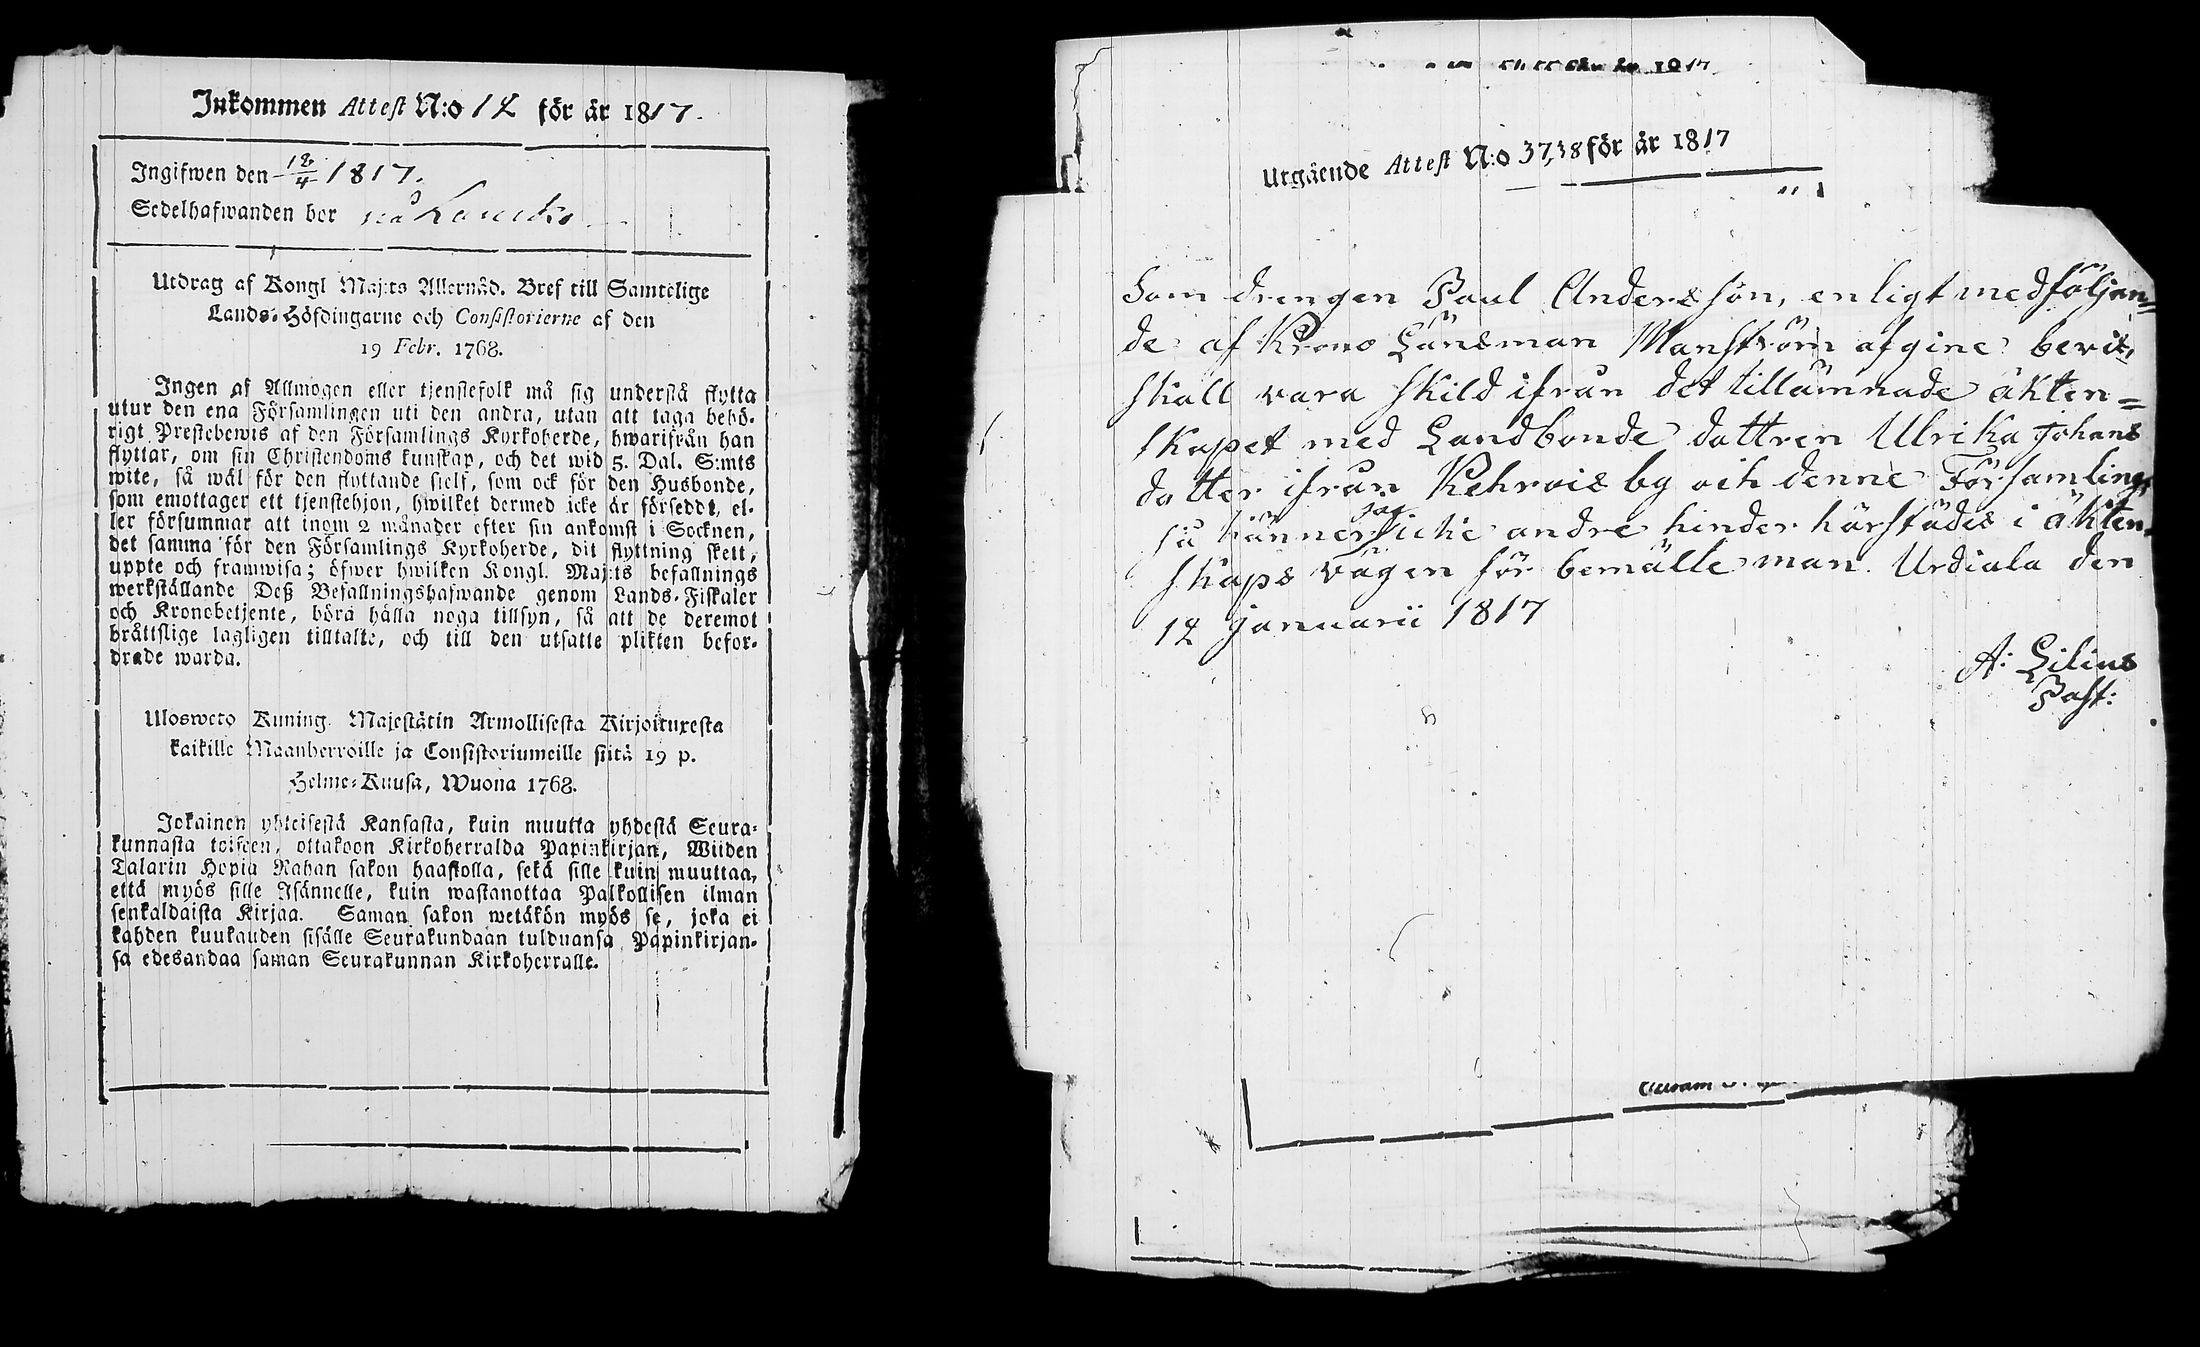 Inkommen Attest N:o 12 för år 1817.
Ingifwen den 18/4 1817.
Sedelhafwanden bor på
Utdrag af Kongl Maj:ts Allernåd. Bref till Samtelige
Lands-Höfdingarne och Consistorierne af den
19 Febr. 1768.
Ingen af Allmogen eller tjenstefolk må sig understå flytta
utur den ena Församlingen uti den andra, utan att taga behö-
rigt Prestebewis af den Församlings Kyrkoherde, hwarifrån han
flyttar, om sin Christendoms kunskap, och det wid 5. Dal. S:mts
wite, så wäl för den flyttande sjelf, som ock för den Husbonde,
som emottager ett tjenstehjon, hwilket dermed icke är förseddt, el-
ler försummar att inom 2 månader efter sin ankomst i Socknen,
det samma för den Församlings Kyrkoherde, dit flyttning skett,
uppte och framwisa; öfwer hwilken Kongl. Maj:ts befallnings
werkställande Deß Befallningshafwande genom Lands-Fiskaler
och Kronobetjente, böra hålla noga tillsyn, så att de deremot
bråttslige lagligen tilltalte, och till den utsatte plikten befor-
drade warda.
Ulosweto Kuning. Majestätin Armollisesta Kirjoituxesta
kaikille Maanherroille ja Consistoriumeille siitä 19 p.
Helme-Kuusa, Wuona 1768.
Jokainen yhteisestä Kansasta, kuin muutta yhdestä Seura-
kunnasta toiseen, ottakoon Kirkoherralda Papinkirjan, Wiiden
Talarin Hopia Rahan sakon haastolla, sekä sille kuin muuttaa,
että myös sille Isännelle, kuin wastanottaa Palkollisen ilman
senkaldaista Kirjaa. Saman sakon wetäkön myös se, joka ei
kahden kuukauden sisälle Seurakundaan tulduansa Papinkirjan-
sa edesandaa saman Seurakunnan Kirkoherralle.
Utgående Attest N:o 37,38 för år 1817
Som drengen Paul Andersson, enligt medföljan=
de af Krono Länsman Manström afgine bevis,
skall vara skild ifrån det tillämnade äkten=
skapet med Landbonde dottren Ulrika Johans
dotter ifrån Kehrois by och denne Församling,
så känner jag icke andre hinder härstädes i äkten-
skaps vägen för bemälte man. Urdiala den
12 Januarii 1817
A: Lilius
Past: